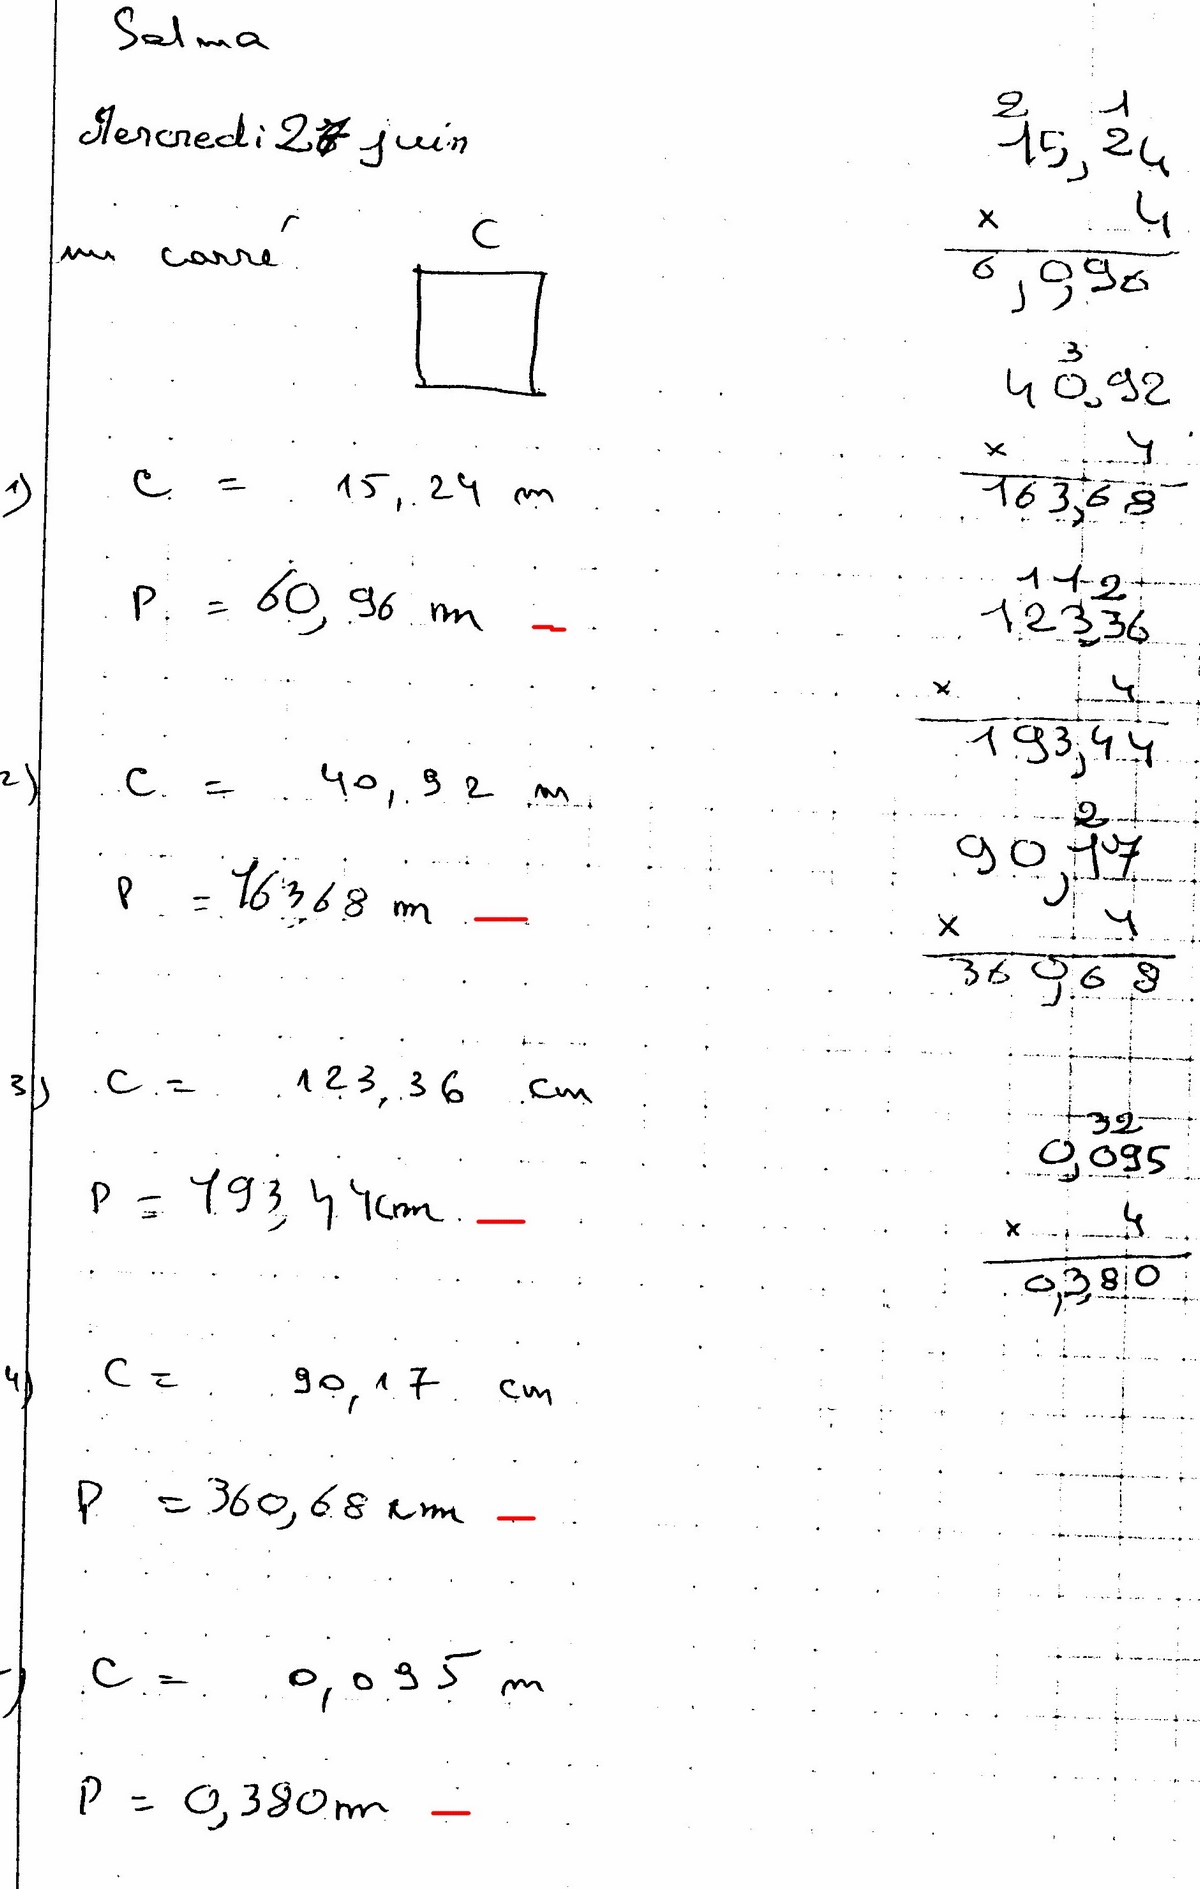 Selma
Mercredi 27 juin
un carré
C
1) C = 15,24 m
P = 60,96 m
2) C = 40,92 m
P = 163,68 m
3) C = 123,36 cm
P = 193,44 cm
4) C = 90,17 cm
P = 360,68 cm
C = 0,095 m
P = 0,380 m
2 1
15,24
x 4
6,0,96
3
40,92
x 4
163,68
1 1 2
123,36
x 4
193,44
2
90,17
x 4
360,68
32
0,095
x 4
0,3,80